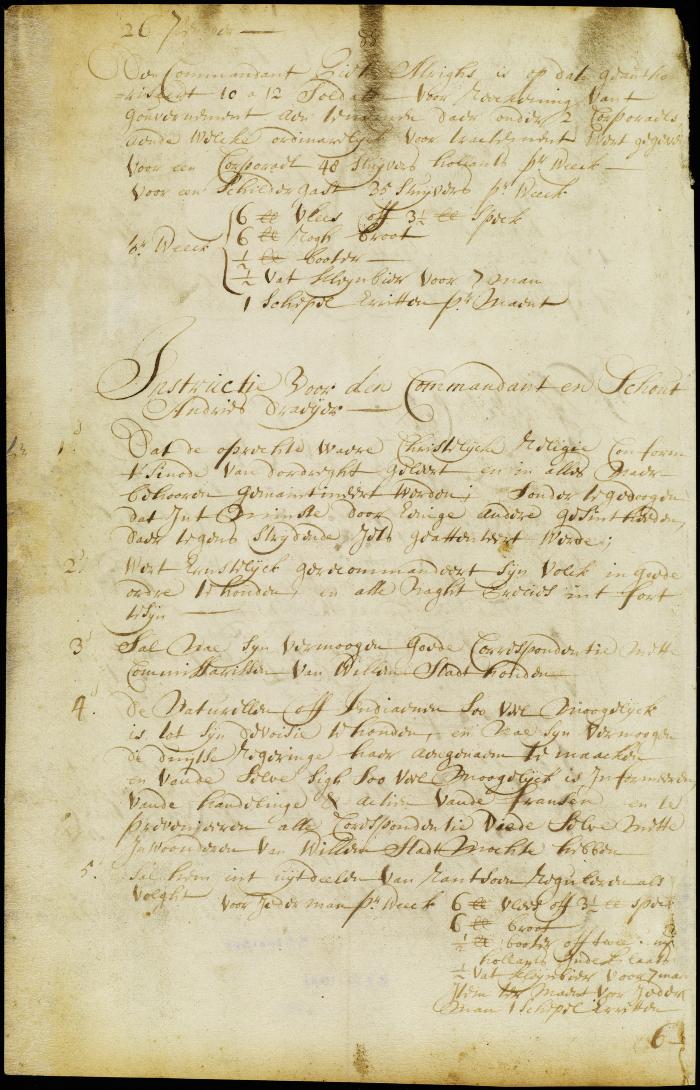 26
Den Commandant is op dato geautho
riseert 10 a 12 Soldaten voor Reeckening vant
gouvernement aen te neemen daer onder 2 Corporaels
aende welcke ordinarelyck voor tractement wert gegeven
voor een Corporael 48 stuyvers hollants pr Weeck
voor een Schildergast 35 Stuyvers pr Weeck
6 ℔ Vlees off 3½ ℔ Speck
6 ℔ Rogh broot
pr Weeck
½ ℔ booter
½ vat kleynbier voor 7 man
1 Schepel Erritten pr Maent
Instructie voor den Commandant en Schout
Andries Draeyer
1. Dat de oprechte waere Christelycke Religie Conform
t' Sinode van dordreght geleert en in alles naer
behooren gemainteneert werden; Sonder te gedoogen
dat Int Minste door Eenige andere gesintheeden,
daer tegens strydende Jets geattenteert werde;
2. Wert Ernstelyck gerecommandeert Syn Volck in goede
ordre te houden, en alle naght precies int fort
te syn
3 Sal nae syn vermoogen goede Correspondentie mette
Commissarissen van Willem Stadt houden
4. de Naturellen off Indiaenen Soo veel Moogelyck
is tot syn devotie te houden, en nae syn vermoogen
de duytse Regeringe haer aengenaem te maacken
en vande selve sigh soo veel Moogelyck is Informeeren
vande handelinge & actien vande fransen en te
prevenieeren alle Correspondentie die de selve mette
Inwoonderen van Willem Stadt Mochte hebben
5. Sal hem int uytdeelen van Rantsoen reguleren als
volght voor Jeder man pr Weeck 6 ℔ vlees off 3½ ℔ speck
6 ℔ broot
½ ℔ booter off twee
hollants
½ vat kleynbier voor 7 man
Item ter Maent voor Jeder
Man 1 Schepel Erritten
6